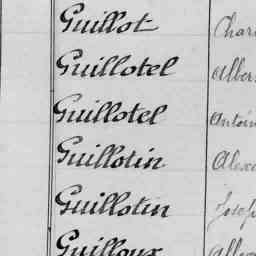 Guillot Char
Guillotel Alber
Guillotel Antoin
Guillotin Alexa
Guillotin Josep
Guilloux Alber